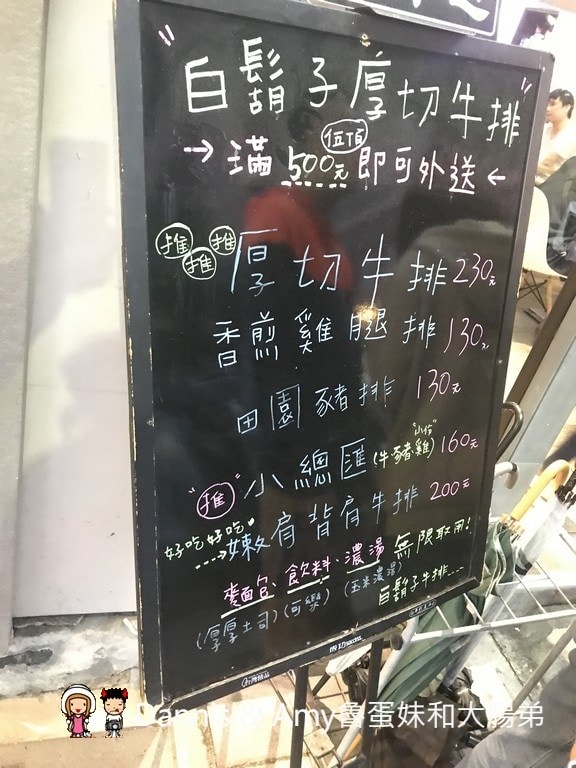 "白鬍子厚切牛排"
→滿500元即可外送←
伍佰
推 推 推 厚切牛排230元
香煎雞腿排130元
田園豬排130元
"推" 小總匯(牛豬雞)160元
好吃好吃
嫩肩背肩牛排200元
麵包、飲料、濃湯 無限取用!
(厚厚土司)(可樂)(玉米濃湯)
白鬍子牛排...
台灣精品
Dannis & Amy魯蛋妹和大腸弟